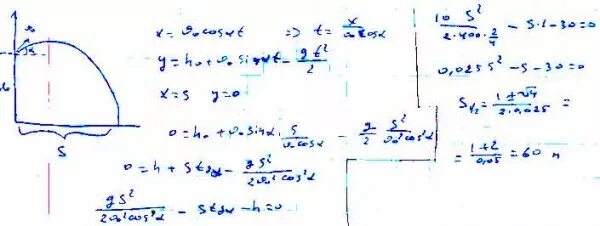 v₀
α
h₀
S
x = v₀cosαt ⇒ t = x/(v₀cosα)
y = h₀ + v₀sinαt − gt²/2
x = S y = 0
0 = h₀ + v₀sinα · S/(v₀cosα) − g/2 · S²/(v₀²cos²α)
0 = h + Stgα − gS²/(2v₀²cos²α)
gS²/(2v₀²cos²α) − Stgα − h = 0
10 S²/(2·400·2/4) − S·1 − 30 = 0
0,025S² − S − 30 = 0
S₁/₂ = (1 ± √4)/(2·0,025) =
= (1+2)/0,05 = 60 м